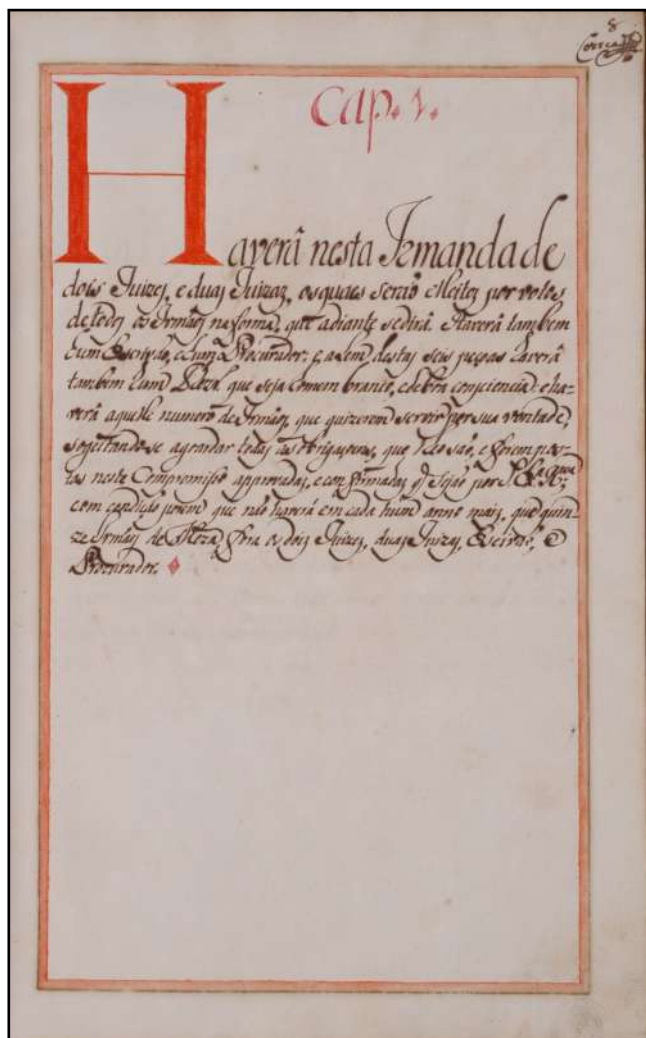 8
Correa
Cap. 1.
Haverâ nesta Irmandade
dois Juizes, e duas Juizas, os quaes seraõ elleitos por votos
de todos os Irmãos na forma, que adiante se dirâ. Haverâ tambem
hum Escrivaõ, e hum Procurador: e, alem destas seis peçoas haverâ
tambem hum que seja homem branco, e de bôa conciencia: e ha-
verâ aquelle numero de Irmãos, que quizerem servir por sua vontade,
sogeitandose a goardar todas as obrigaçoens, que são, e forem pos-
tas neste Compromisso approvadas, e confirmadas q̃ sejaõ por
com condição porem que não haverâ em cada hum anno mais, que quin-
ze Irmãos de Meza, fora os dois Juizes, duas Juizas, Escrivaõ, e
Procurador.